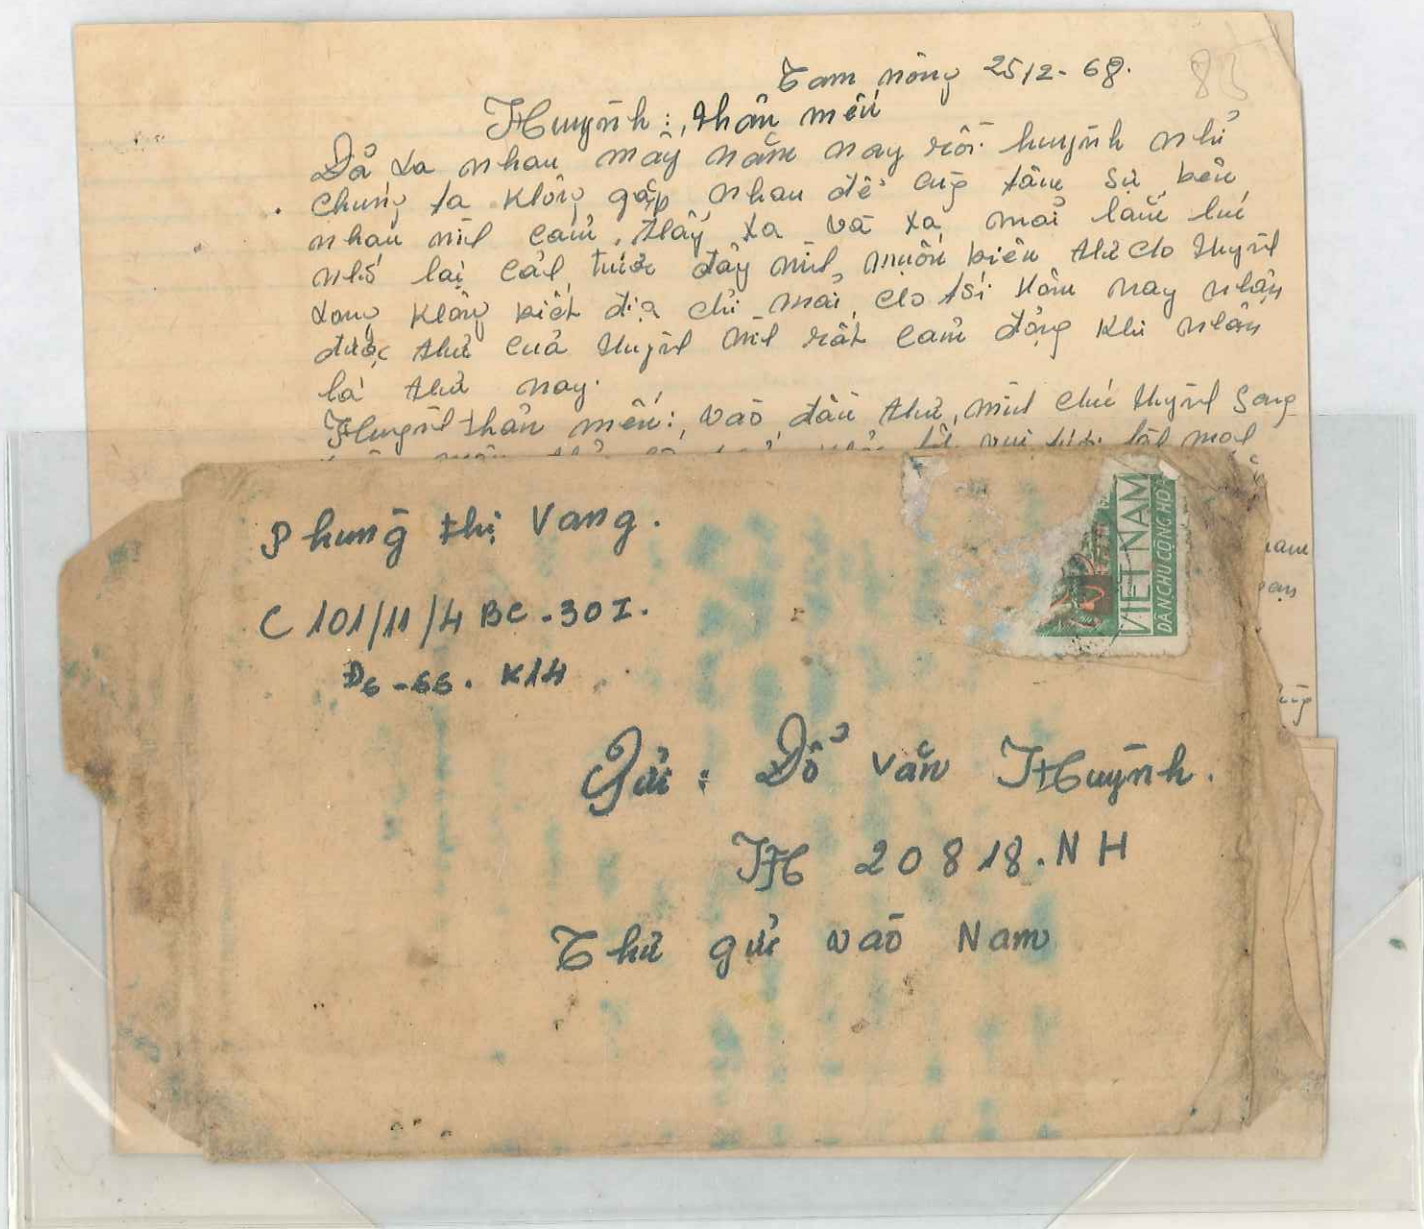 Tam nông 25/2-68.
83
Huỳnh: thân mến
Đã xa nhau mấy năm nay rồi huỳnh nhỉ
chúng ta không gặp nhau để cùng tâm sự bên
nhau mình cảm thấy xa và xa mãi lắm lúc
nhớ lại cảnh trước đây mình muốn biên thư cho Huỳnh
xong không biết địa chỉ mãi cho tới hôm nay nhận
được thư của Huỳnh mình rất cảm động khi nhận
lá thư nay.
Huỳnh thân mến: vào đầu thư, mình chúc Huỳnh song
Phùng thị Vang.
C 101/11/4 BC-30I.
Đ6-66. K14
VIỆT NAM
DÂN CHỦ CỘNG HÒA
Gửi: Đỗ văn Huỳnh.
H 20818.NH
Thư gửi vào Nam